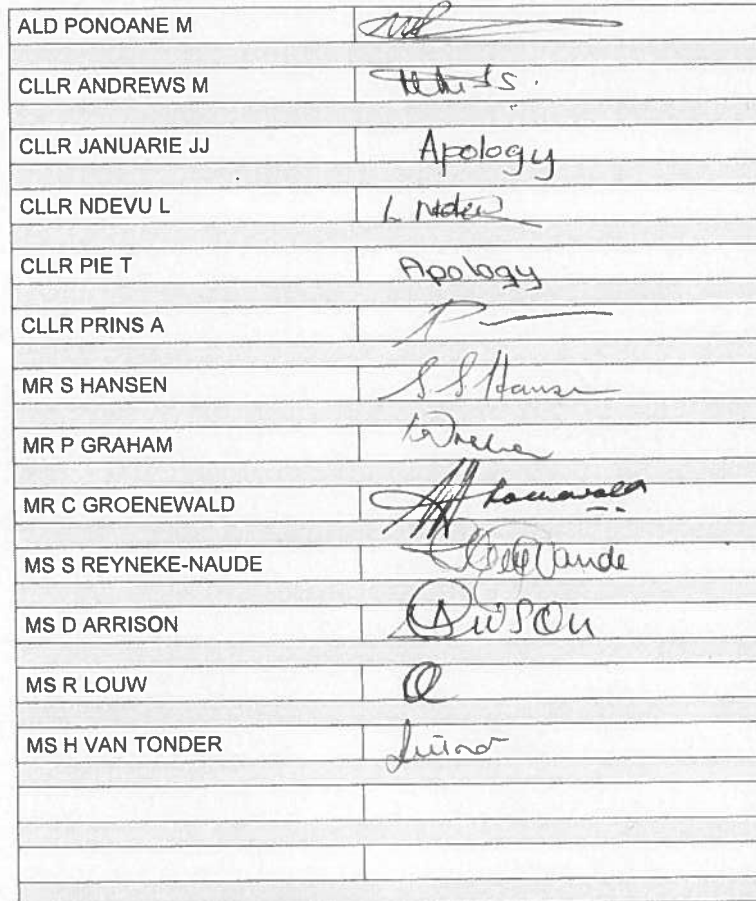 ALD PONOANE M
CLLR ANDREWS M
CLLR JANUARIE JJ Apology
CLLR NDEVU L L Ndevu
CLLR PIE T Apology
CLLR PRINS A
MR S HANSEN S S Hansen
MR P GRAHAM
MR C GROENEWALD
MS S REYNEKE-NAUDE
MS D ARRISON
MS R LOUW
MS H VAN TONDER